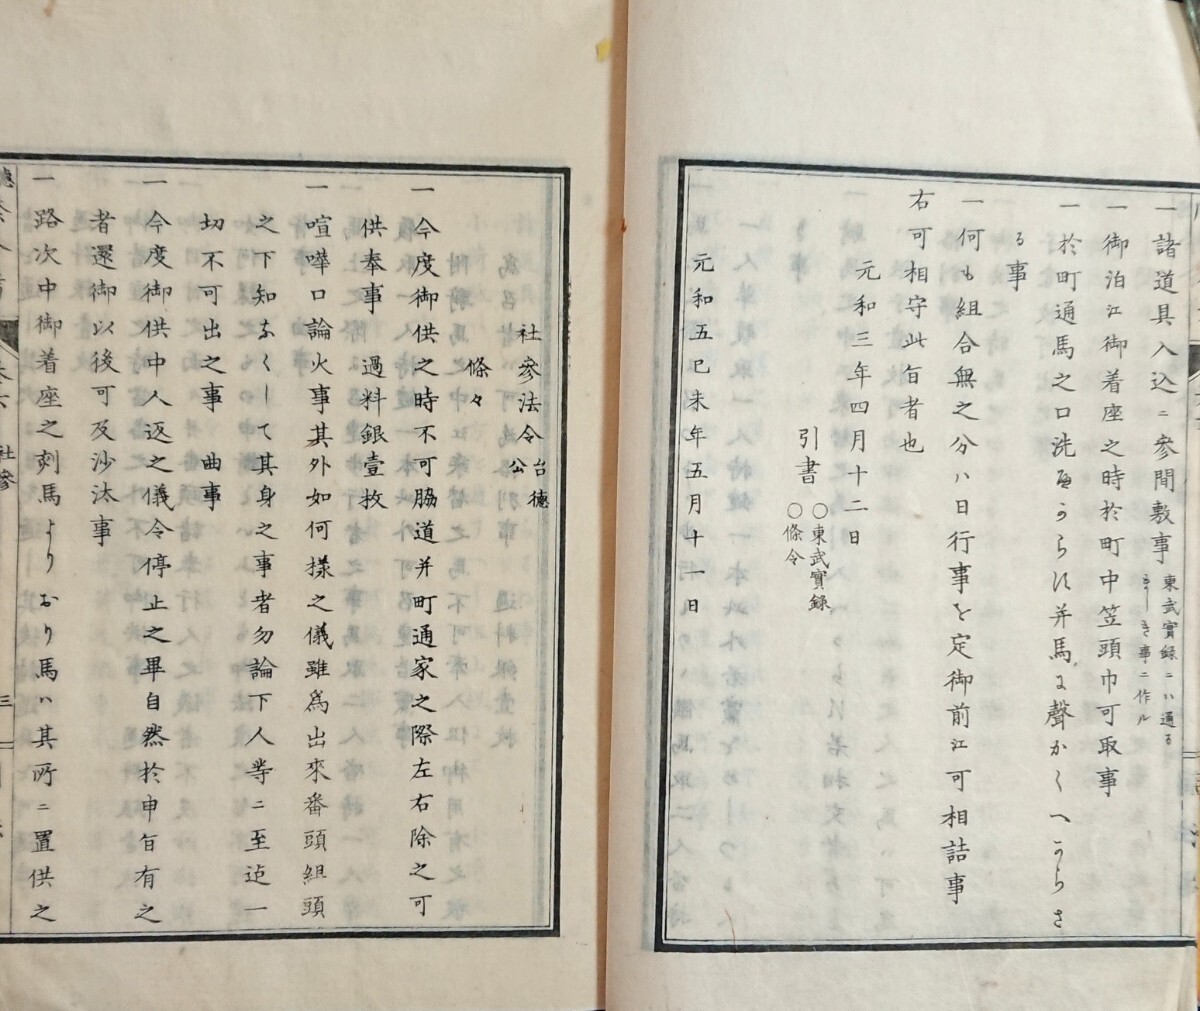 一諸道具入込ニ參間敷事
東武實録ニハ通る
ましき事ニ作ル
一御泊江御着座之時於町中笠頭巾可取事
一於町通馬之口洗へからす并馬に聲かくへからさ
る事
一何も組合無之分ハ日行事を定御前江可相詰事
右可相守此旨者也
元和三年四月十二日
引書
〇東武實録
〇條令
元和五己未年五月十一日
社參法令
台德
公
條々
一今度御供之時不可脇道并町通家之際左右除之可
供奉事 過料銀壹枚
一喧嘩口論火事其外如何樣之儀雖爲出來番頭組頭
之下知なくして其身之事者勿論下人等ニ至迄一
切不可出之事 曲事
一今度御供中人返之儀令停止之畢自然於申旨有之
者還御以後可及沙汰事
一路次中御着座之刻馬よりおり馬ハ其所ニ置供之
社參
三